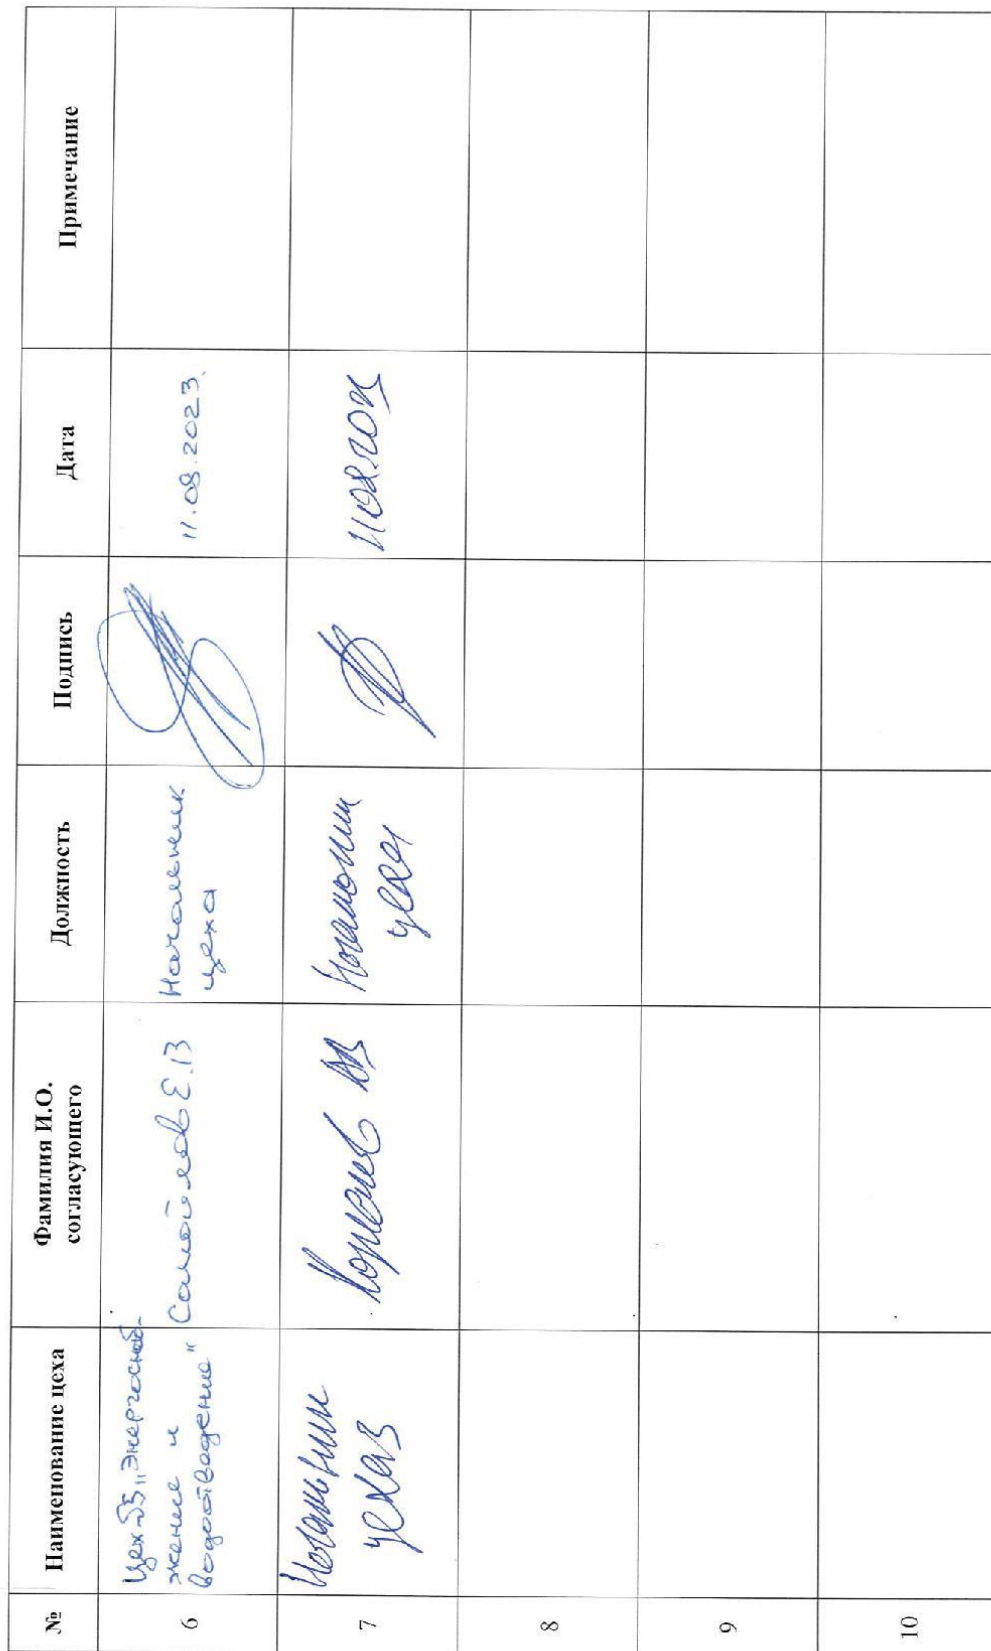 № Наименование цеха Фамилия И.О. согласующего Должность Подпись Дата Примечание
6 Цех №5 "Энергоснаб-
жение и
водоотведение" Самойлов Е.В Начальник
цеха 11.08.2023.
7 Начальник
цеха 3 Начальник
цеха
8
9
10